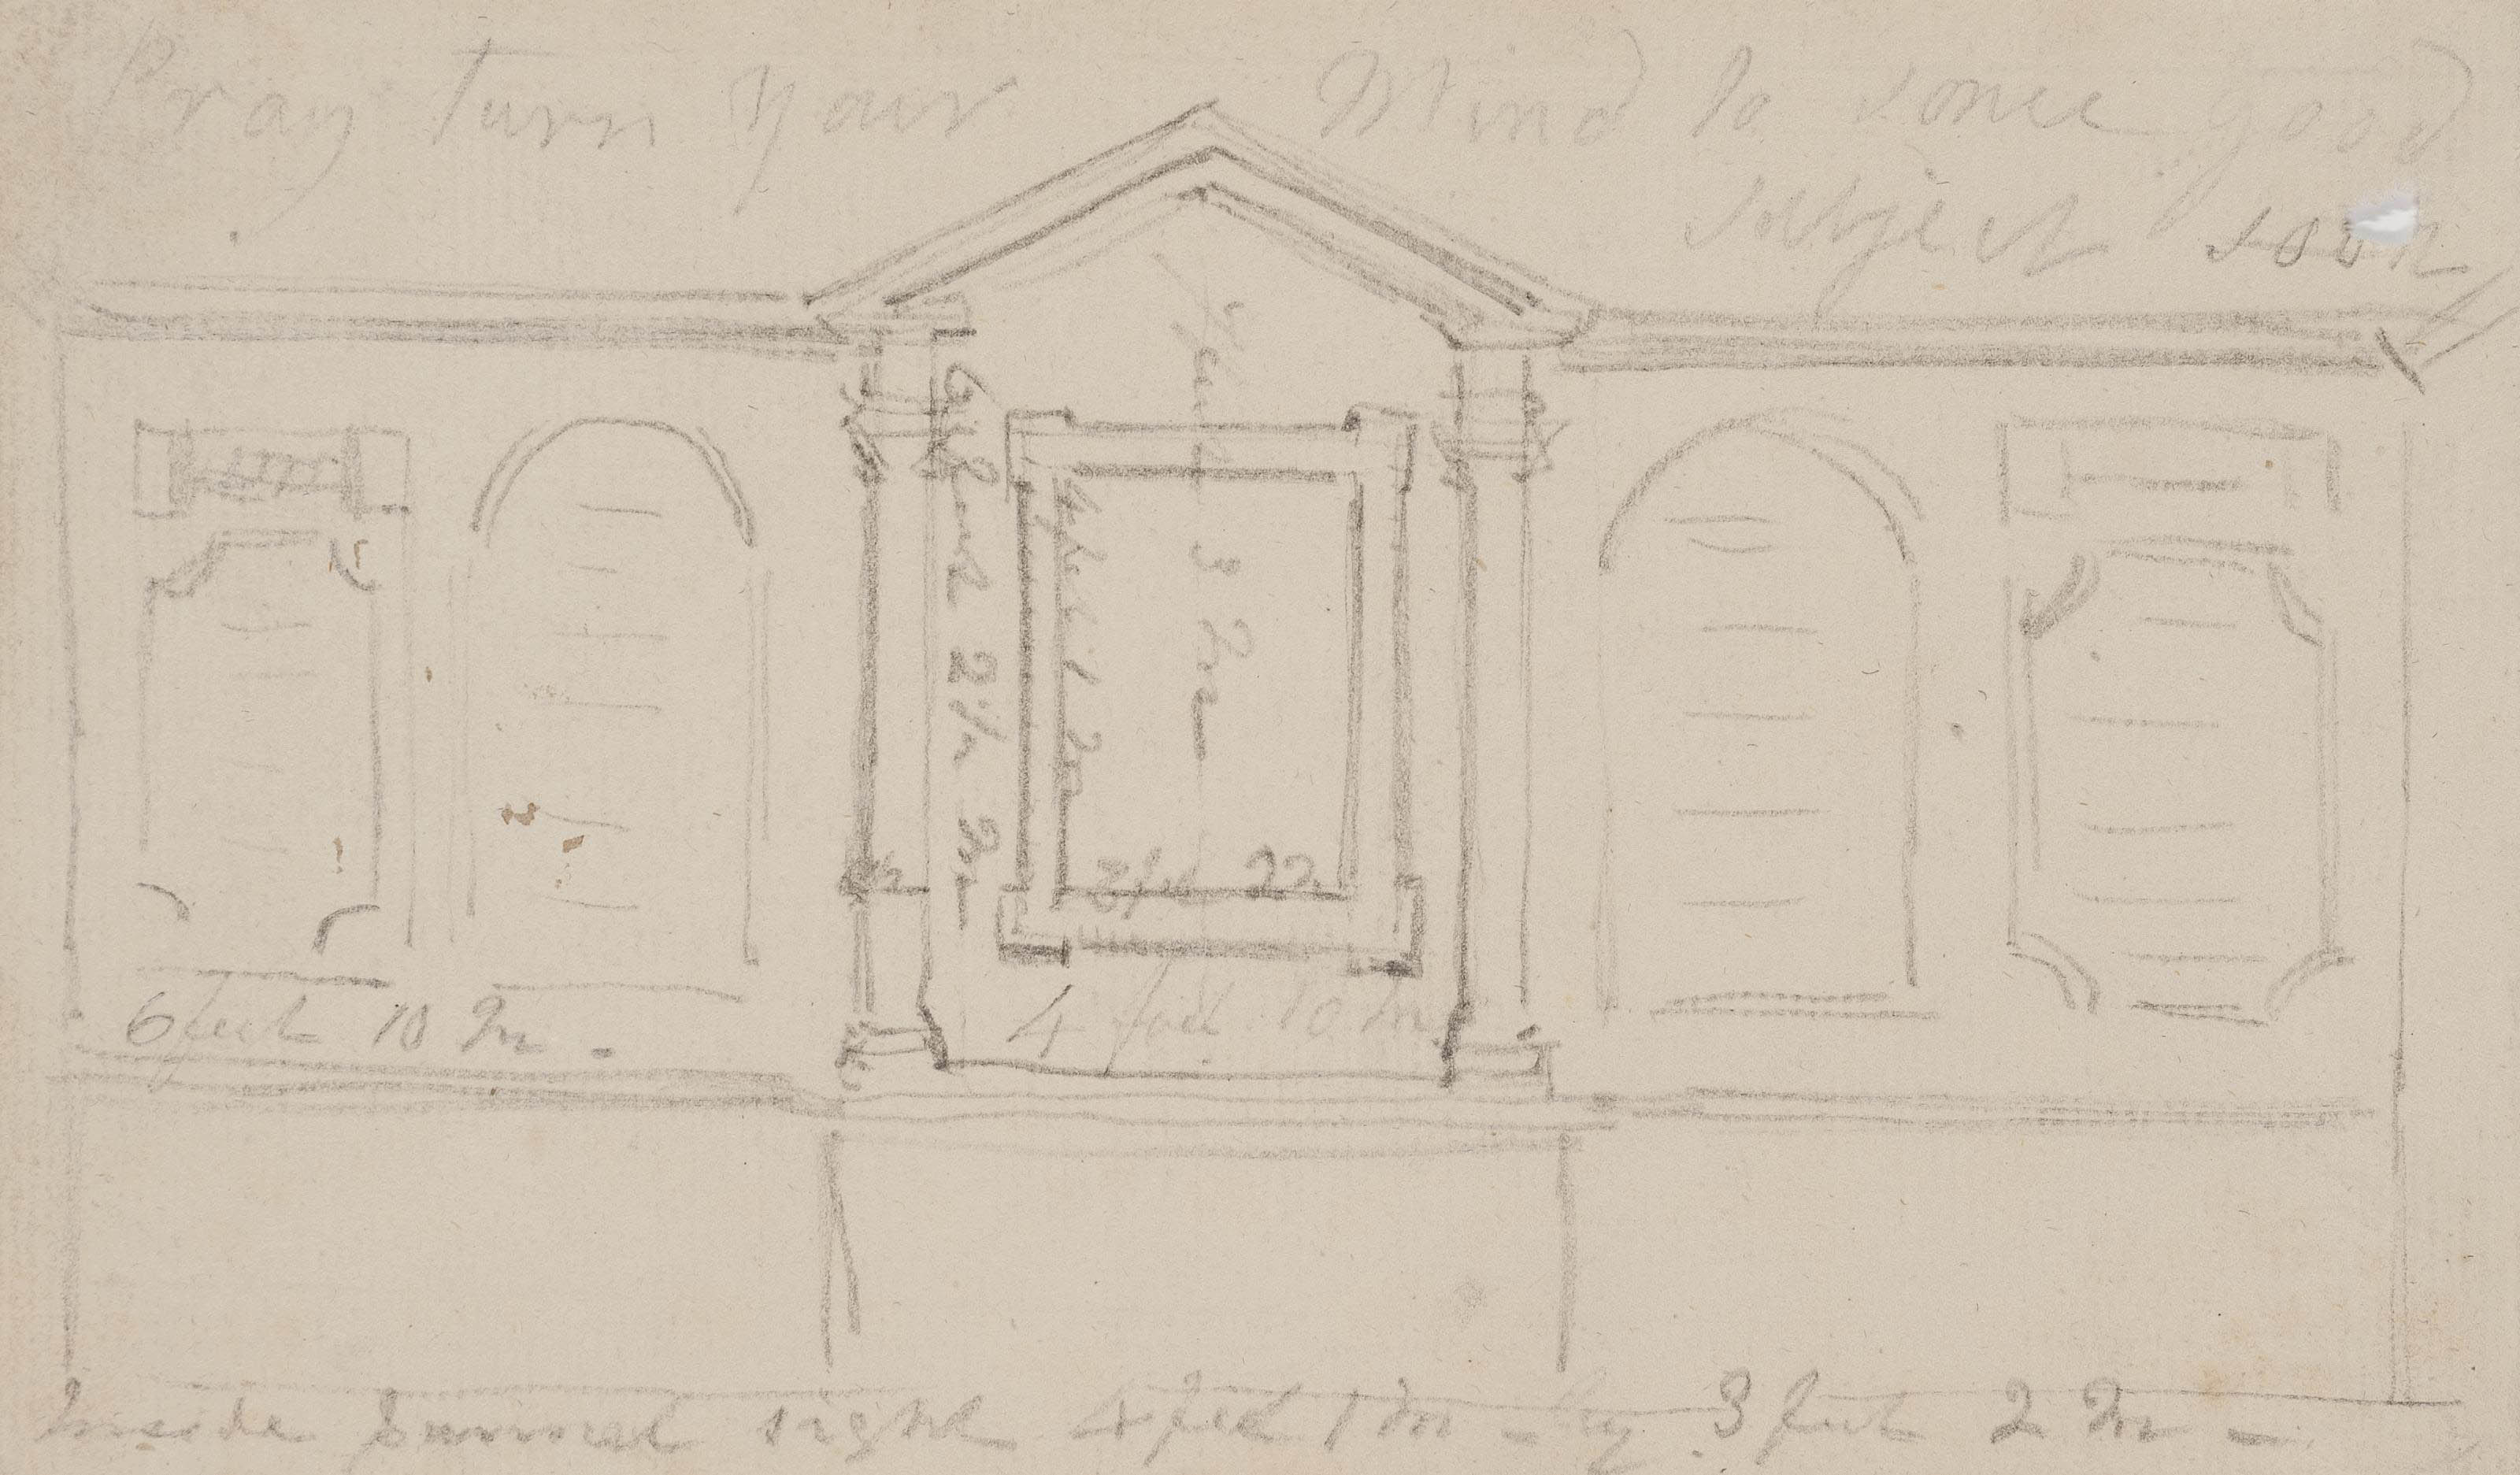 Pray turn your Mind to some good
subject soon
7 feet 3 In
6 feet 2 1/2 In
4 feet 1 In
3 feet 2 2
4 feet 10 In
6 feet 10 In -
Inside sight 4 feet 1 In - by 3 feet 2 In -